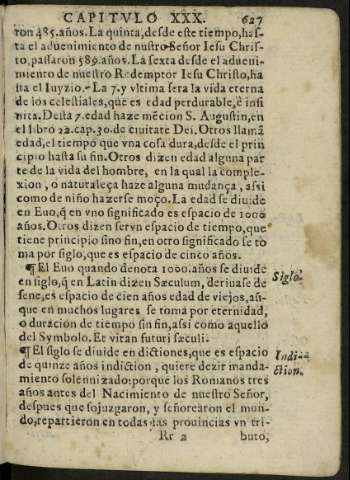 CAPITVLO XXX. 627
ron 485. años. La quinta, desde este tiempo, has-
ta el aduenimiento de nustro Señor Iesu Chris-
to, passaron 589. años. La sexta desde el adueni-
miento de nuestro Redemptor Iesu Christo, ha
sta el Iuyzio. La 7. y vltima sera la vida eterna
de los celestiales, que es edad perdurable, è infi
nita. Desta 7. edad haze mēcion S. Augustin, en
el libro 22. cap. 30. de ciuitate Dei. Otros llamā
edad, el tiempo que vna cosa dura, desde el prin
cipio hasta su fin. Otros dizen edad alguna par
te de la vida del hombre, en la qual la comple-
xion, o naturaleça haze alguna mudança, assi
como de niño hazerse moço. La edad se diuide
en Euo, q̃ en vno significado es espacio de 1000
años. Otros dizen ser vn espacio de tiempo, que
tiene principio sino fin, en otro significado se to
ma por siglo, que es espacio de cinco años.
¶ El Euo quando denota 1000. años se diuide
en siglo, q̃ en Latin dizen Sæculum, deriuase de
sene, es espacio de cien años edad de viejos, aū-
que en muchos lugares se toma por eternidad,
o duracion de tiempo sin fin, assi como aquello
del Symbolo. Et vitan futuri sæculi.
Siglo.
¶ El siglo se diuide en dictiones, que es espacio
de quinze años indiction, quiere dezir manda-
miento solennizado: porque los Romanos tres
años antes del Nacimiento de nuestro Señor,
despues que sojuzgaron, y señorearon el mun-
do, repartieron en todas las prouincias vn tri-
Indi-
ction.
Rr 2 buto,